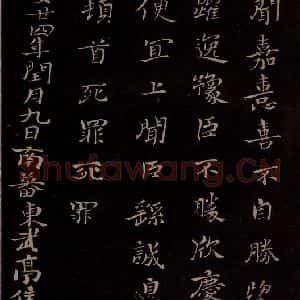 聞嘉憙喜不自勝望
躍逸豫臣不勝欣慶
便宜上聞臣繇誠皇
頓首死罪死罪
廿四年閏月九日南蕃東武亭侯
shufawang.CN